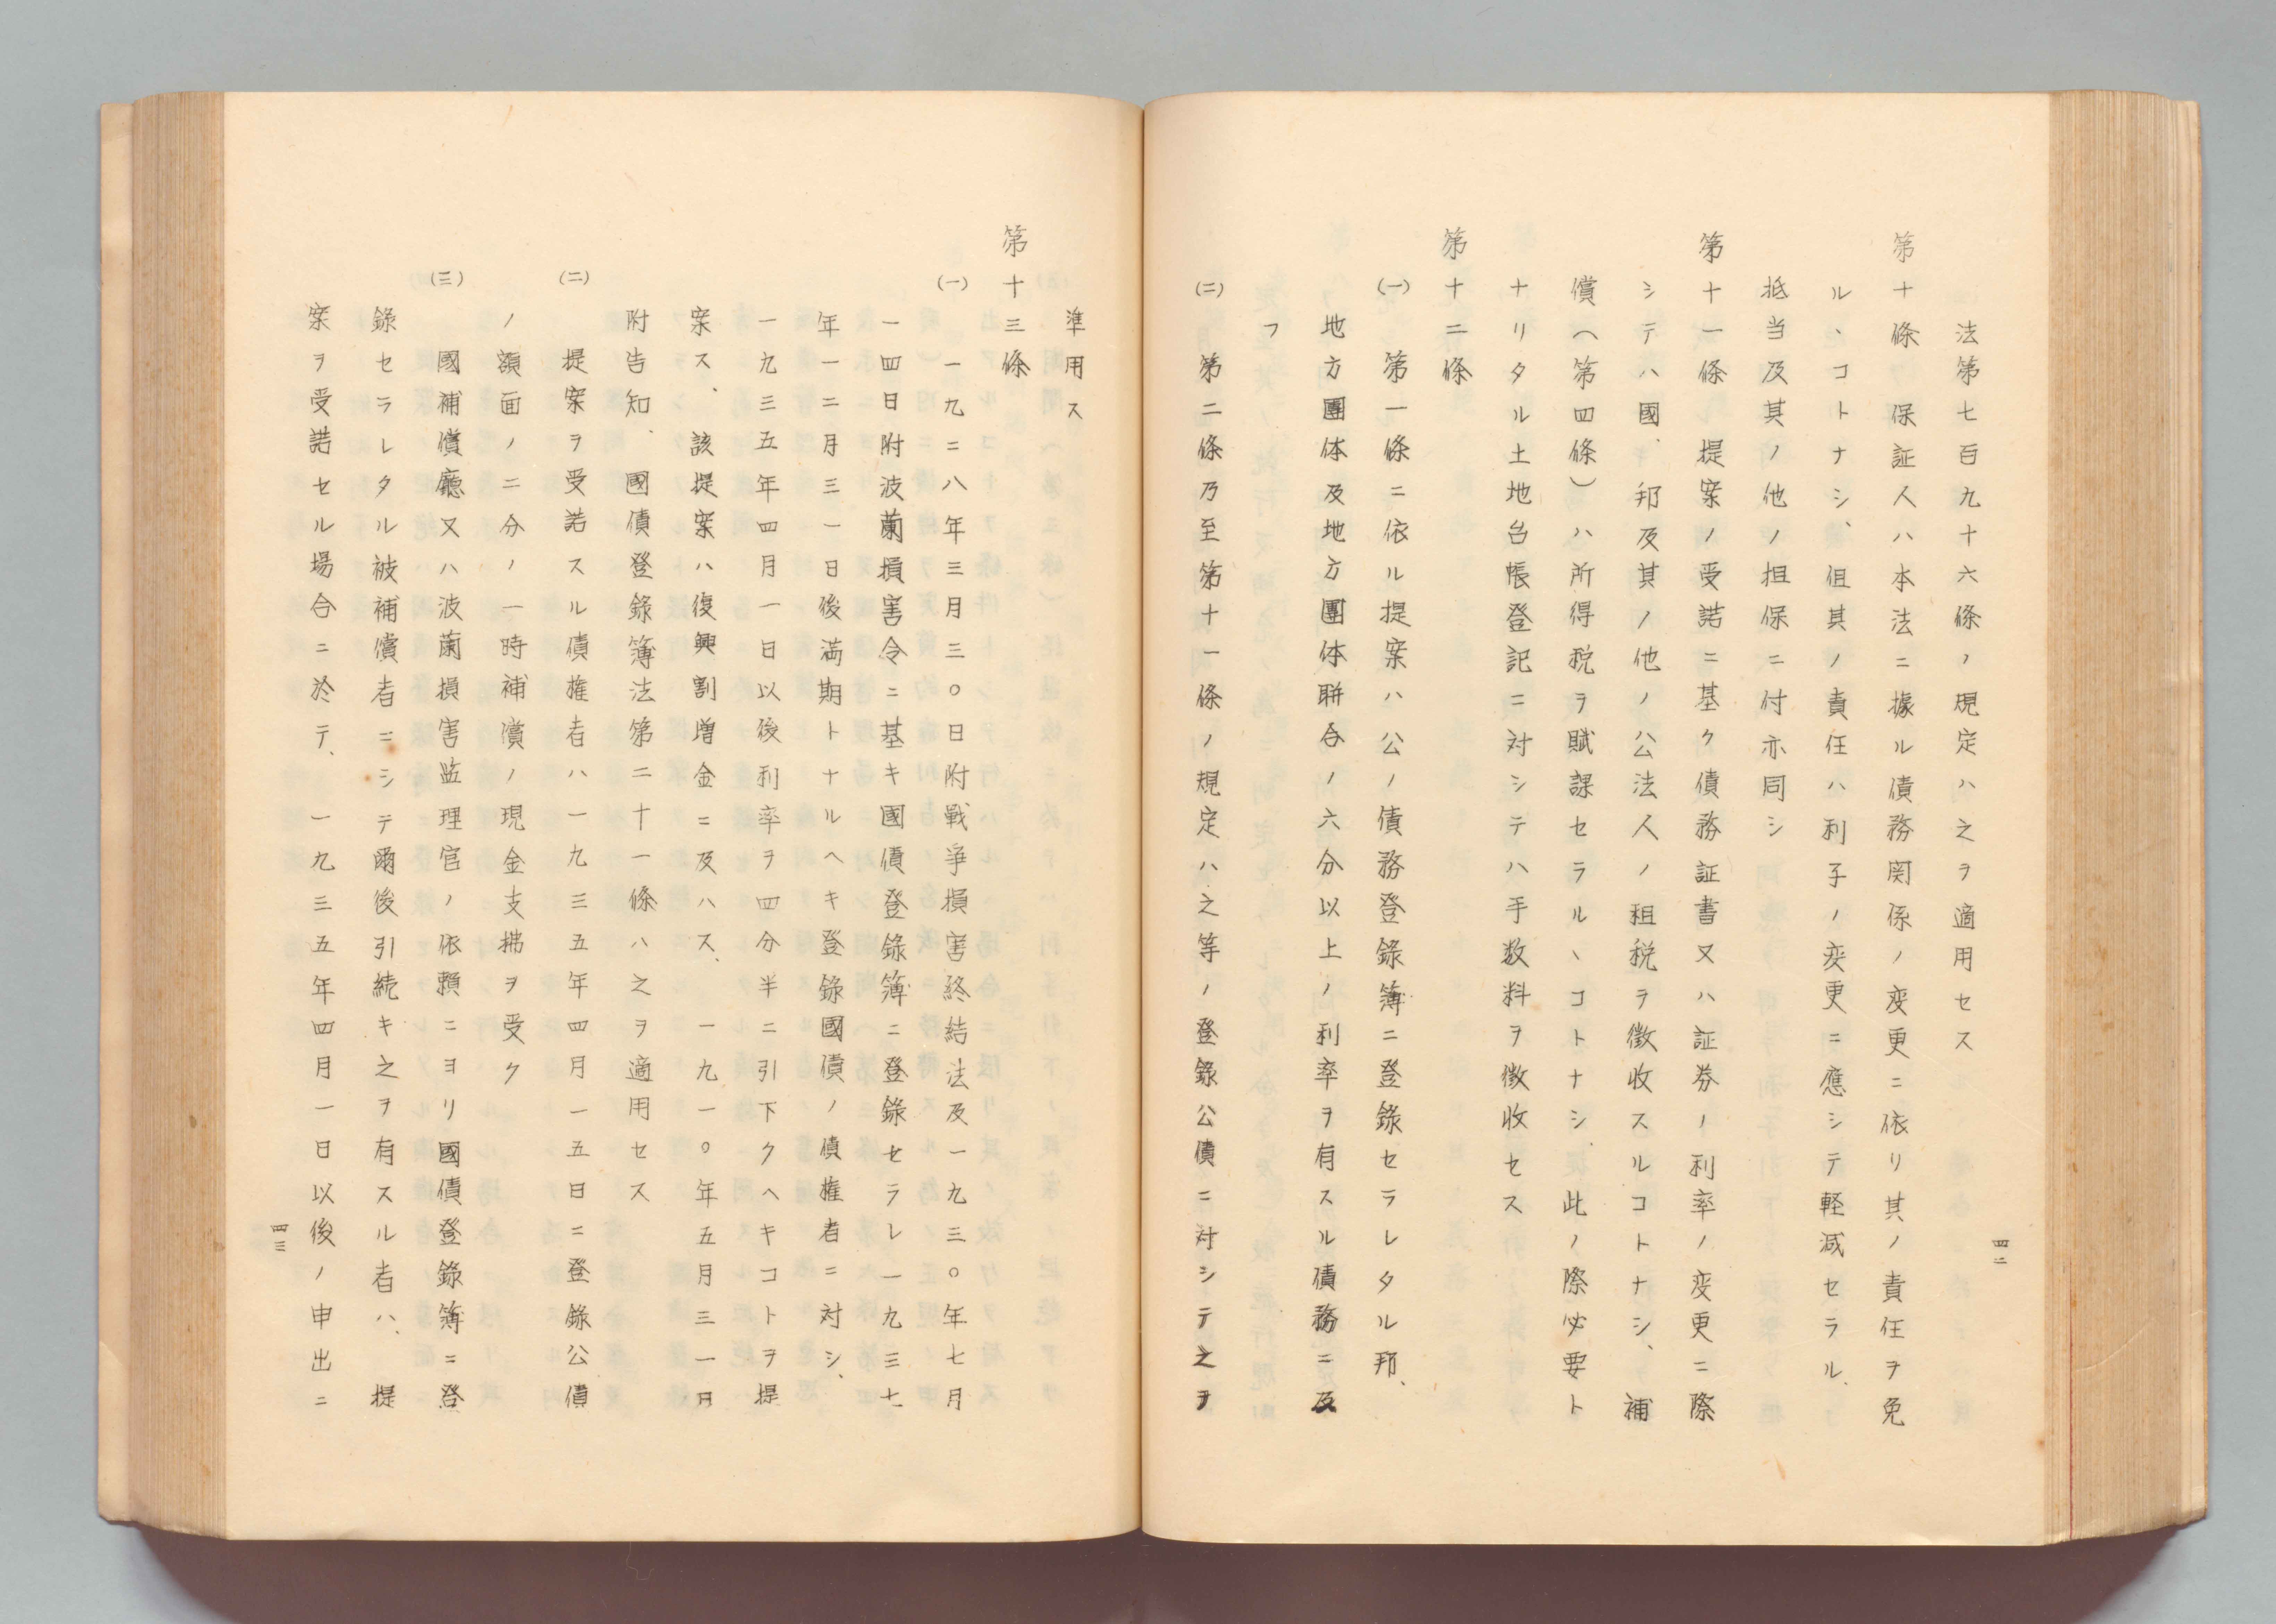 法第七百九十六條ノ規定ハ之ヲ適用セス
第十條　保証人ハ本法ニ據ル債務関係ノ変更ニ依リ其ノ責任ヲ免
ルヽコトナシ、但其ノ責任ハ利子ノ変更ニ應シテ軽減セラル、
抵当及其ノ他ノ担保ニ付亦同シ
第十一條　提案ノ受諾ニ基ク債務証書又ハ証券ノ利率ノ変更ニ際
シテハ國、邦及其ノ他ノ公法人ノ租税ヲ徴収スルコトナシ、補
償（第四條）ハ所得税ヲ賦課セラルヽコトナシ、此ノ際必要ト
ナリタル土地台帳登記ニ対シテハ手数料ヲ徴収セス
第十二條
(一)　第一條ニ依ル提案ハ公ノ債務登錄簿ニ登錄セラレタル邦、
地方團体及地方團体聨合ノ六分以上ノ利率ヲ有スル債務ニ及
フ
(二)　第二條乃至第十一條ノ規定ハ之等ノ登錄公債ニ対シテ之ヲ
四二
準用ス
第十三條
(一)　一九二八年三月三〇日附戰爭損害終結法及一九三〇年七月
一四日附波蘭損害令ニ基キ國債登錄簿ニ登錄セラレ一九三七
年一二月三一日後満期トナルヘキ登錄國債ノ債権者ニ対シ、
一九三五年四月一日以後利率ヲ四分半ニ引下クヘキコトヲ提
案ス、該提案ハ復興割増金ニ及ハス、一九一〇年五月三一日
附告知、國債登錄簿法第二十一條ハ之ヲ適用セス
(二)　提案ヲ受諾スル債権者ハ一九三五年四月一五日ニ登錄公債
ノ額面ノ二分ノ一時補償ノ現金支拂ヲ受ク
(三)　國補償廳又ハ波蘭損害監理官ノ依頼ニヨリ國債登錄簿ニ登
錄セラレタル被補償者ニシテ爾後引続キ之ヲ有スル者ハ、提
案ヲ受諾セル場合ニ於テ、一九三五年四月一日以後ノ申出ニ
四三